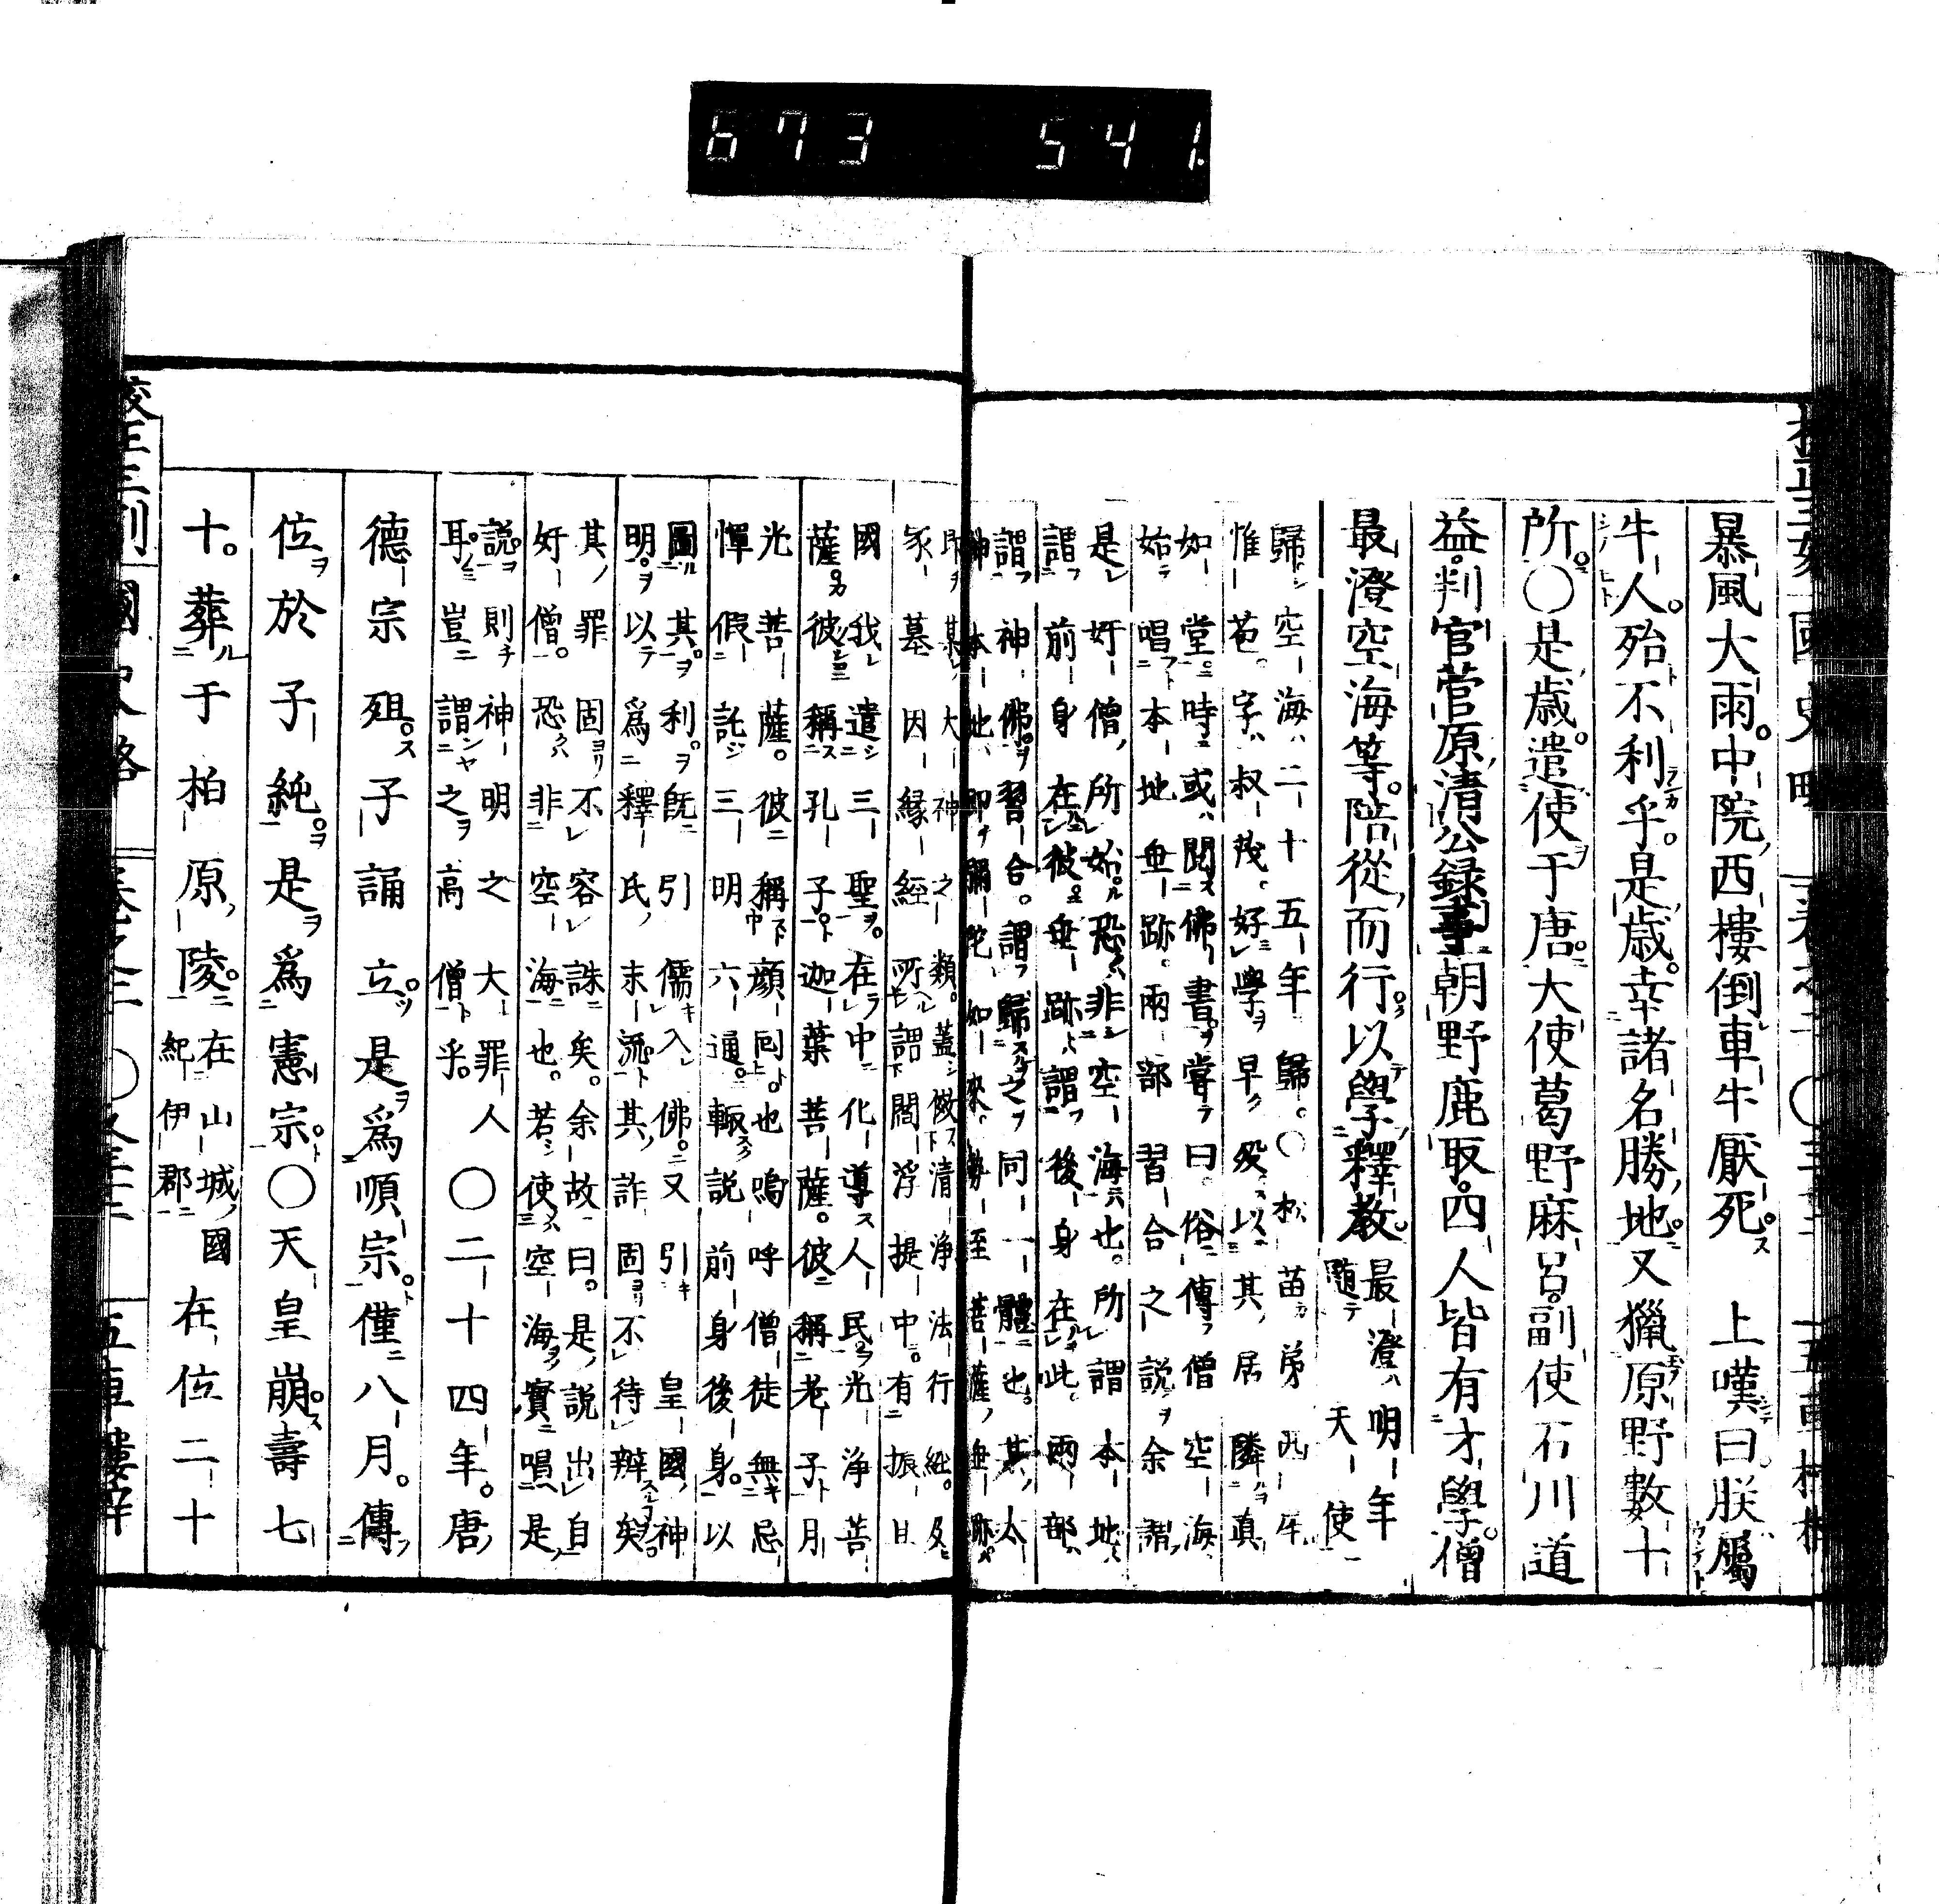 673 541
暴風大雨。中院西樓倒車牛厭死。上嘆曰朕屬
牛人。殆不利乎。是歳。幸諸名勝地。又獵原野數十
所。○是歳。遣使于唐。大使葛野麻呂。副使石川道
益。判官菅原清公録事朝野鹿取。四人皆有才學。僧
最澄空海等。陪從而行。以學釋教。
最澄明年
隨天使
歸。空海二十五年歸。○
惟苞。字叔茂。好學早歿。以其居隣眞
如堂。時或閲佛書。嘗曰。俗傳僧空海
始唱本地垂跡。兩部習合之説。余謂
是奸僧所始。恐非空海也。所謂本地
謂前身在彼。垂跡謂後身在此。兩部
謂神佛。習合。謂歸之同一體也。其太
神本地即彌陀如來。勢至菩薩垂跡
即某大神之類。蓋倣清淨法行經。及
冢墓因縁經所謂閻浮提中。有振旦
國我遣三聖。在中化導人民光淨菩
薩。彼稱孔子。迦葉菩薩。彼稱老子月
光菩薩。彼稱顔回也。嗚呼僧徒無忌
憚假託三明六通。輙説前身後身。以
圖其利。既引儒入佛。又引皇國神
明。以爲釋氏末流。其詐固不待辨矣。
其罪固不容誅矣。余故曰。是説出自
奸僧。恐非空海也。若使空海實唱是
説則神明之大罪人
耳。豈謂之高僧乎。
○二十四年。唐
德宗殂。子誦立。是爲順宗。僅八月。傳
位於子純。是爲憲宗。○天皇崩。壽七
十。葬于柏原陵。
在山城國
紀伊郡
在位二十
國史略